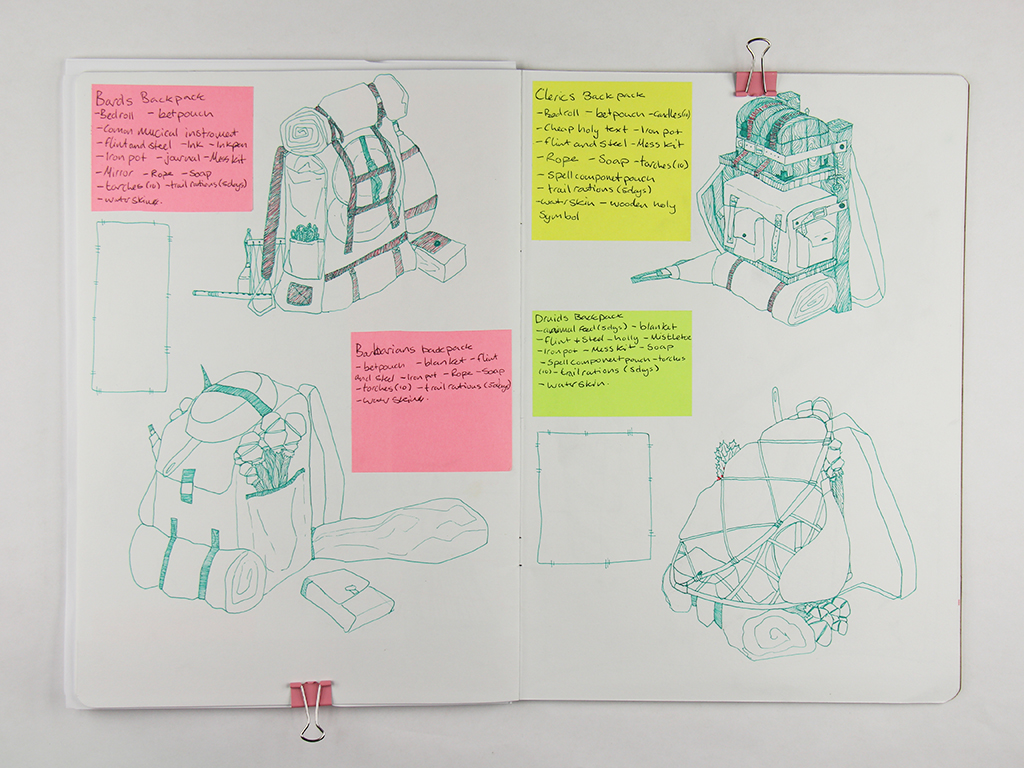 Bards Backpack
-Bedroll -betpouch
-Comon musical instrument
-flint and steel -Ink -Inkpen
-Iron pot -journal -Mess kit
-Mirror -Rope -Soap
-torches (10) -trail rations (5days)
-waterskin.
Barbarians backpack
-betpouch -blanket -flint
and steel -Iron pot -Rope -Soap
-torches (10) -trail rations (5days)
-waterskin.
Clerics Backpack
-Bedroll -betpouch -candles(10)
-Cheap holy text -Iron pot
-flint and steel -Mess kit
-Rope -Soap -torches (10)
-Spell component pouch
-trail rations (5days)
-waterskin -wooden holy
Symbol
Druids Backpack
-animal feed (5dys) -blankit
-flint + Steel -holly -Mistletoe
-Iron pot -Mess Kit -Soap
-Spell component pouch -torches
(10) -trail rations (5days)
-waterskin.